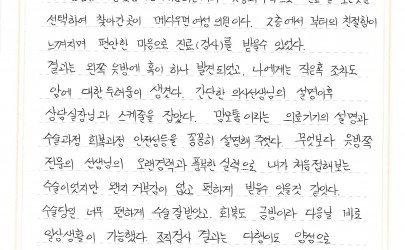 선택하여 찾아간 곳이 메디우먼여성의원이다. 2층에서 부터의 친절함이
느껴지며 편안한 마음으로 진료(검사)를 받을수 있었다.
결과는 왼쪽 윗방에 혹이 하나 발견되었고, 나에게는 작은혹 조차도
암에 대한 두려움이 생겼다. 간단한 의사선생님의 설명이후
상담실장님과 스케줄을 잡았다. 맘모톰이라는 의료기기의 설명과
수술과정 회복과정 안전성등을 꼼꼼히 설명해 주셨다. 무엇보다 유방쪽
전문의 선생님의 오랜경력과 풍부한 실력으로 내가 처음접해보는
수술이었지만 왠지 거부감이 없고 편하게 받을수 있을것 같았다.
수술당일 너무 편하게 수술 잘받았고, 회복도 금방이라 다음날 바로
일상생활이 가능했다. 조직검사 결과는 다행이도 양성으로